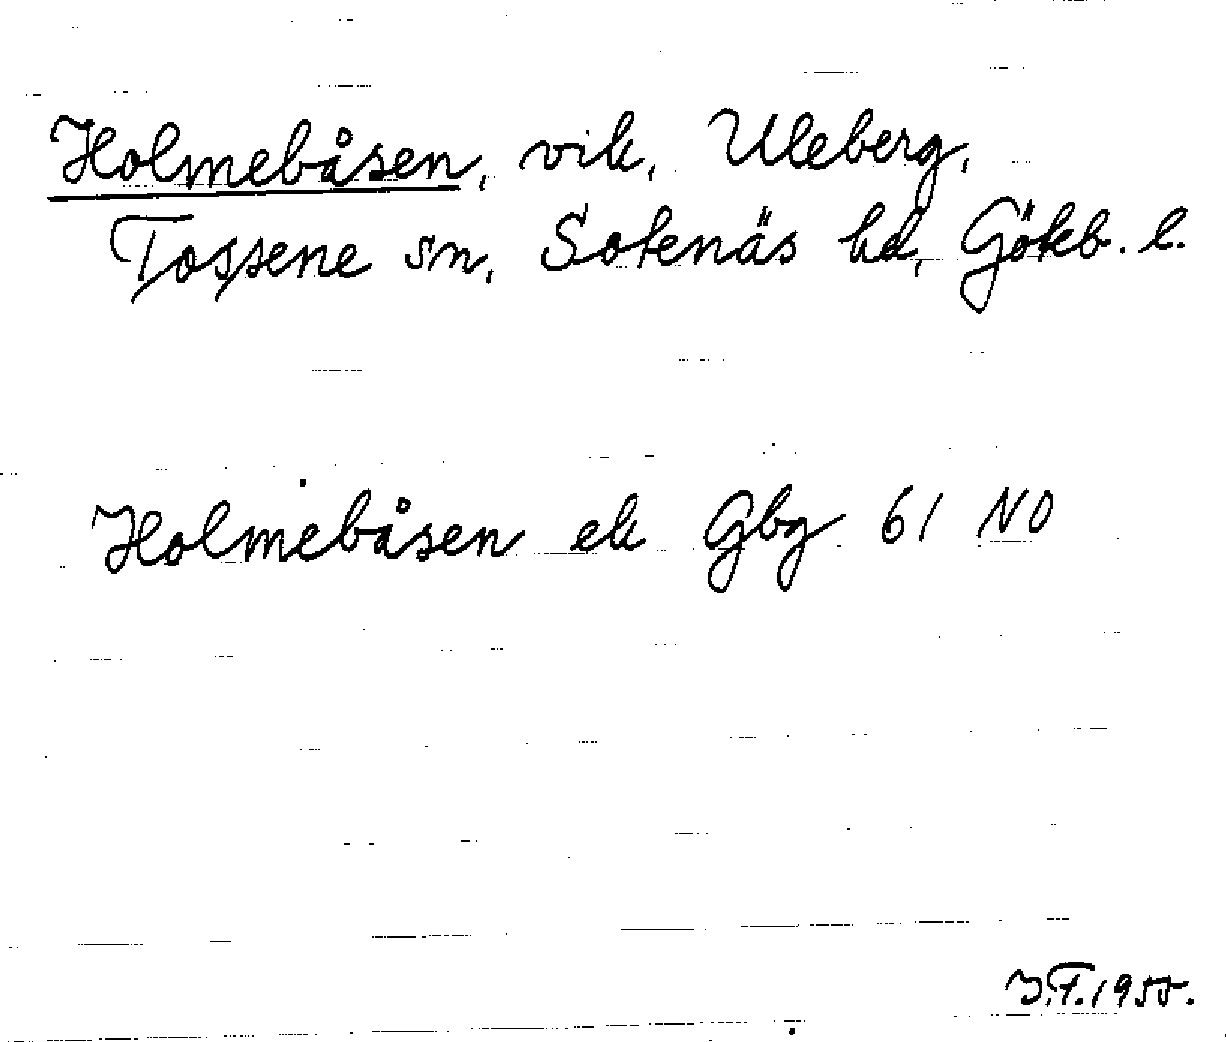 Holmebåsen, vik, Uleberg,
Tossene sn, Sotenäs hd, Göteb. l.
Holmebåsen ek Gbg 61 NO
J.F. 1955.